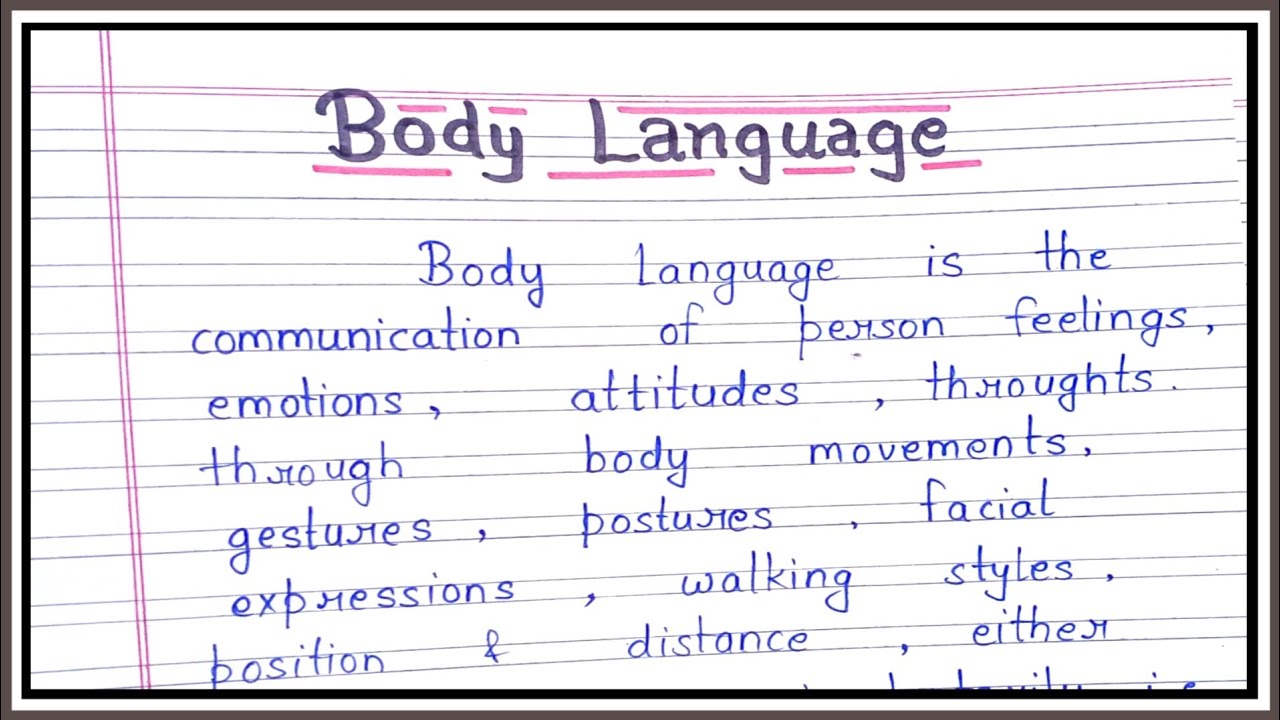 Body Language
Body Language is the
communication of person feelings,
emotions, attitudes, throughts.
through body movements,
gestures, postures, facial
expressions, walking styles,
position & distance, either